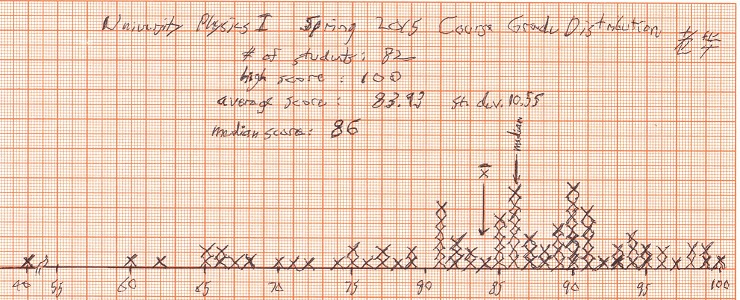 University Physics I Spring 2015 Course Grade Distribution
# of students: 82
high score: 100
average score: 83.93 st. dev. 10.55
median score: 86
median
x̄
40 55 60 65 70 75 80 85 90 95 100